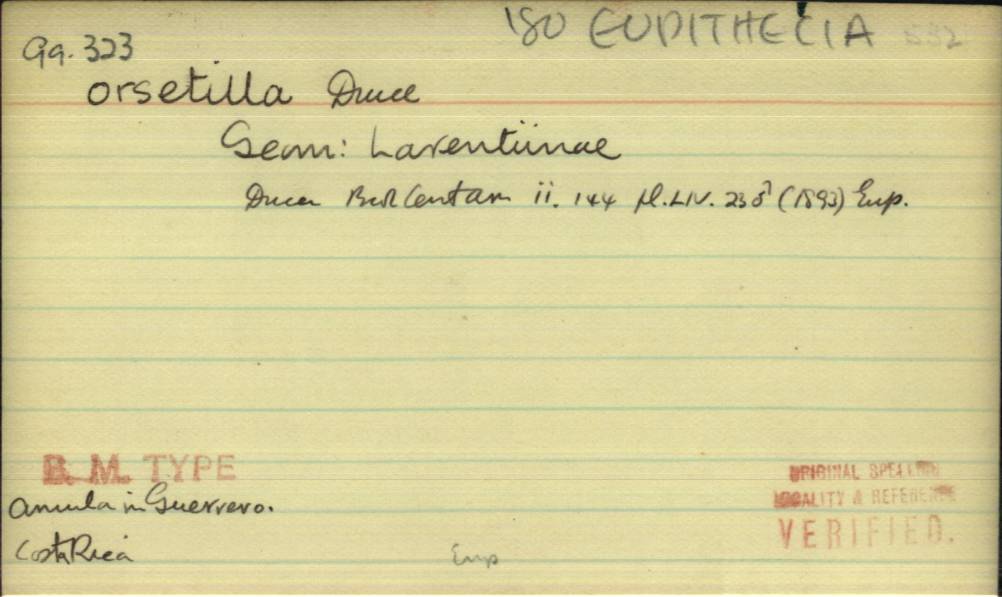 180 EUPITHECIA 532
Gg. 323
orsetilla Druce
Geom: Larentiinae
Druce Biol Centam ii. 144 pl. LIV. 23♂ (1893) Eup.
B. M. TYPE
Amula in Guerrero.
Costa Rica
Eup
ORIGINAL SPELLING
LOCALITY & REFERENCE
VERIFIED.